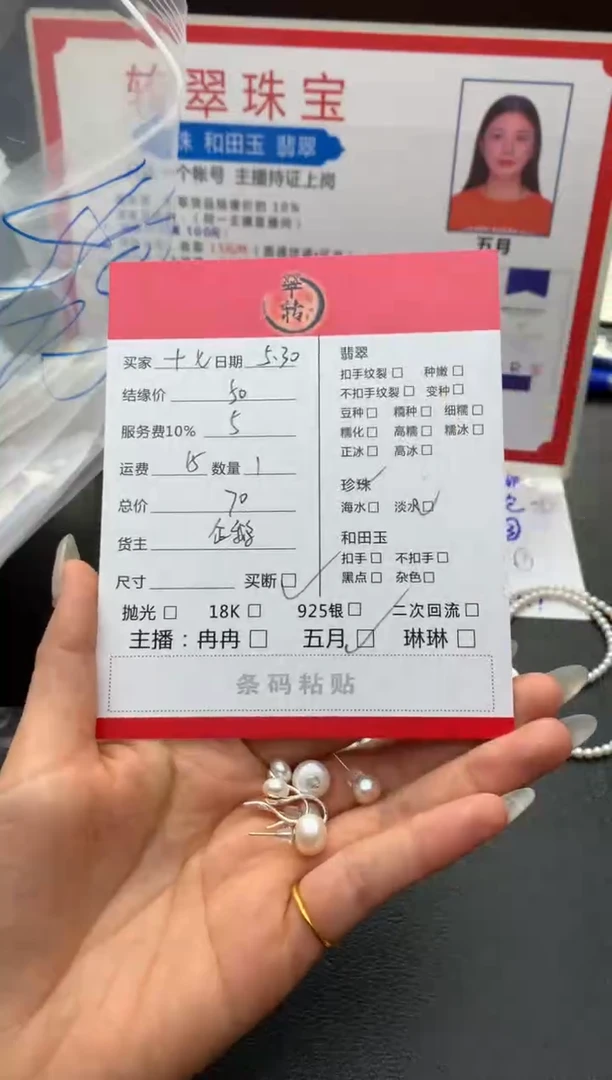 翠珠宝
珠 和田玉 翡翠
个帐号 主播持证上岗
五月
翠
转
买家 十七 日期 5.30
结缘价 50
服务费10% 5
运费 15 数量 1
总价 70
货主
尺寸 买断
翡翠
扣手纹裂 种嫩
不扣手纹裂 变种
豆种 糯种 细糯
糯化 高糯 糯冰
正冰 高冰
珍珠
海水 淡水
和田玉
扣手 不扣手
黑点 杂色
抛光 18K 925银 二次回流
主播：冉冉 五月 琳琳
条码粘贴